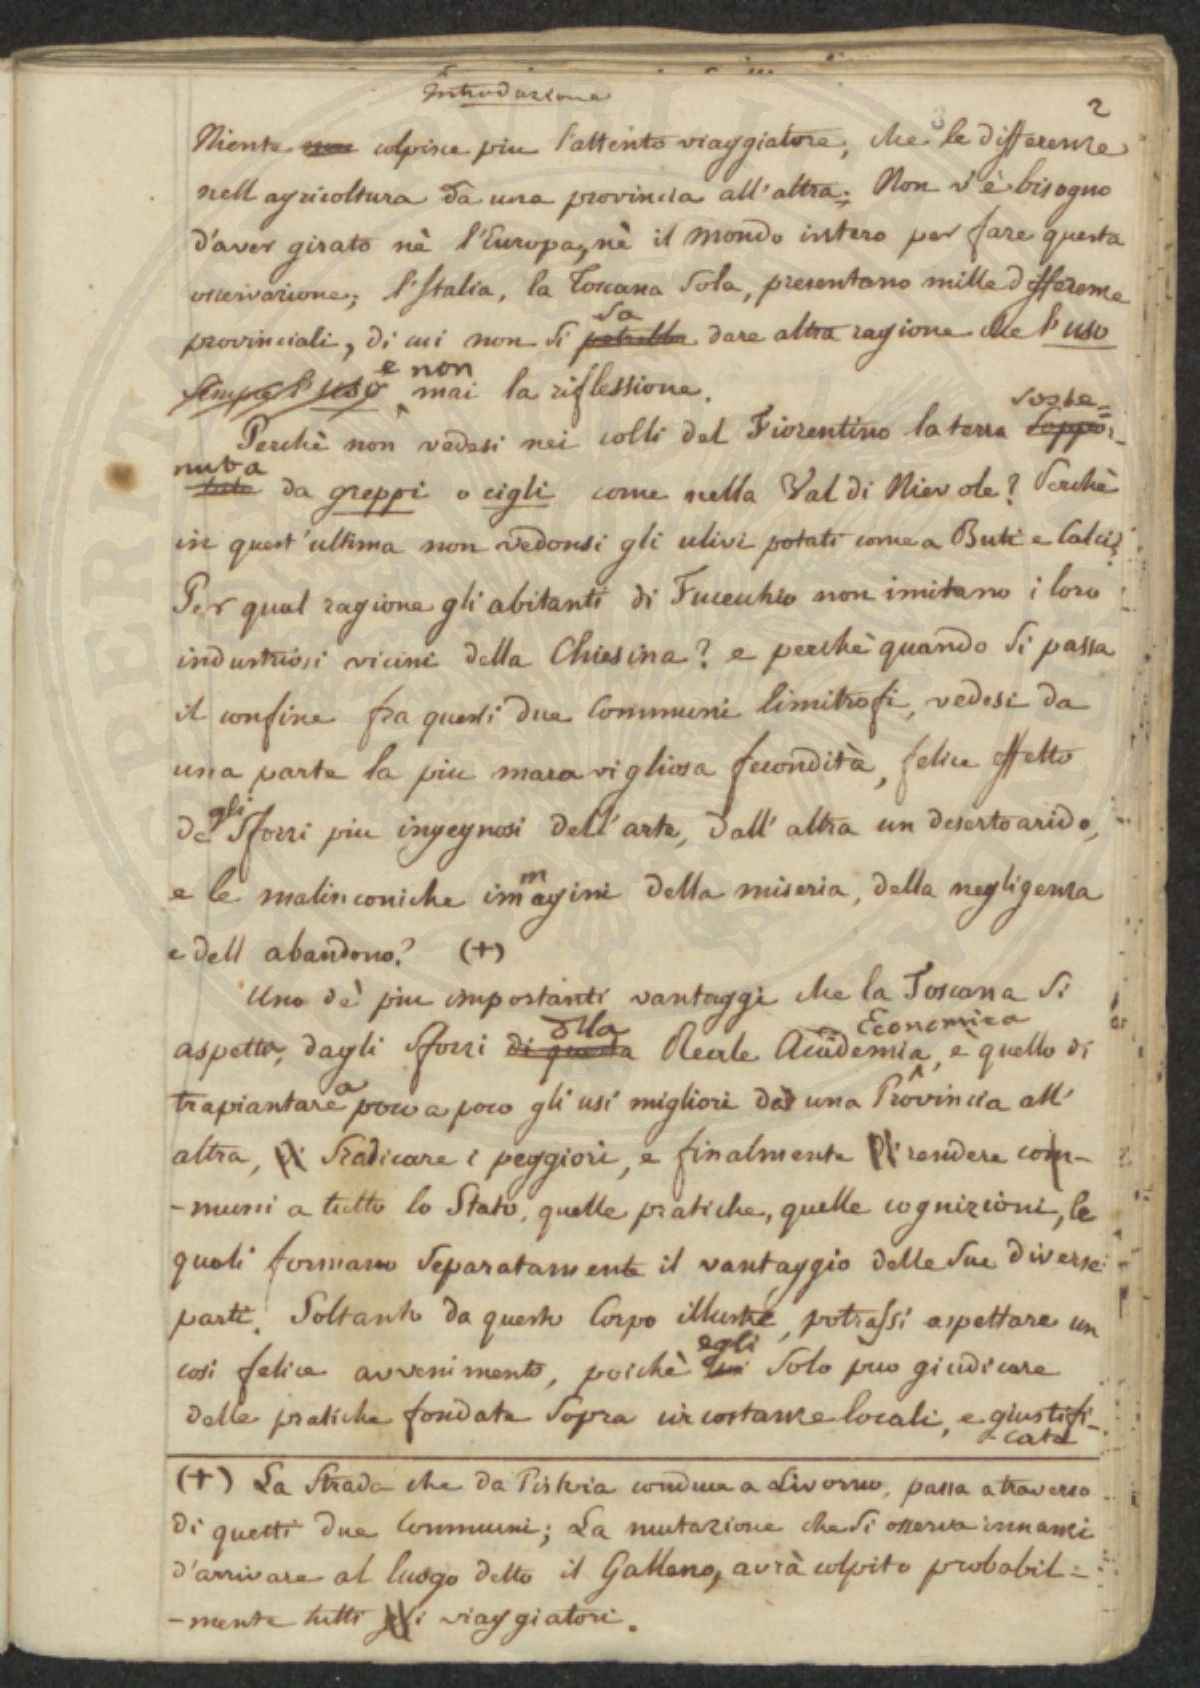 Introduzione
2
Niente non colpisce piu l'attento viaggiatore, che le differenze
nell agricoltura da una provincia all'altra; Non v'è bisogno
d'aver girato nè l'Europa, nè il mondo intero per fare questa
osservazione; l'Italia, la Toscana sola, presentano mille differenze
sa
provinciali, di cui non si potrebbe dare altra ragione che l'uso
e non
sempre l'uso mai la riflessione.
soste=
Perchè non vedesi nei colli del Fiorentino la terra soppor-
nuta
tata da greppi o cigli come nella Val di Nievole? Perchè
in quest'ultima non vedonsi gli ulivi potati come a Buti e Calci?
Per qual ragione gli abitanti di Fucecchio non imitano i loro
industriosi vicini della Chiesina? e perchè quando si passa
il confine fra questi due Communi limitrofi, vedesi da
una parte la piu maravigliosa fecondità, felice effetto
gli
de sforzi piu ingegnosi dell'arte, dall'altra un deserto arido,
m
e le malinconiche imagini della miseria, della negligenza
e dell abandono? (+)
Uno de' piu importanti vantaggi che la Toscana si
della Economica
aspetta, dagli sforzi di questa Reale Accademia, è quello di
a
trapiantare poco a poco gli usi migliori da una Provincia all'
altra, di sradicare i peggiori, e finalmente di rendere com-
-muni a tutto lo Stato, quelle pratiche, quelle cognizioni, le
quali formano separatamente il vantaggio delle sue diverse
parti. Soltanto da questo Corpo illustre, potrassi aspettare un
egli
cosi felice avvenimento, poichè lui solo puo giudicare
delle pratiche fondate sopra circostanze locali, e giustifi-
-cate
(+) La Strada che da Pistoia conduce a Livorno, passa a traverso
di questi due Communi; La mutazione che si osserva innanzi
d'arrivare al luogo detto il Galleno, avrà colpito probabil=
-mente tutti gli i viaggiatori.